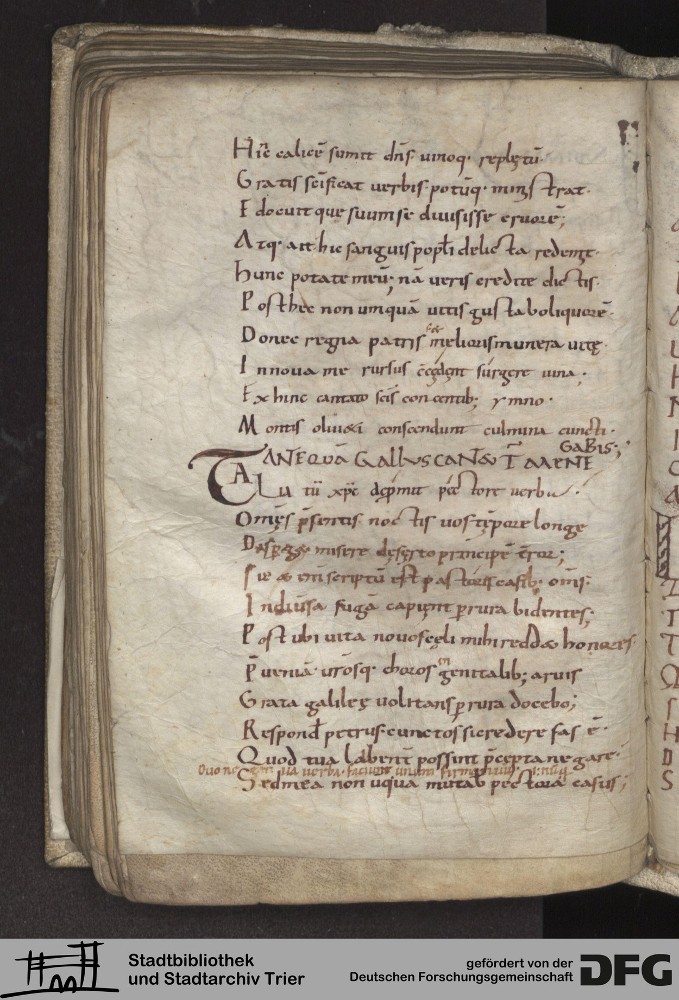 Hīc calicē sumit dn̄s uinoq· replętū·
Gratis sc̄ificat uerbis· potūq· ministrat·
Edocuit que suum se diuisisse cruorē;
Atq· ait hic sanguis popl̄i delicta redemit·
hunc potate meū; nā ueris credite dictis·
Posthęc non umquā uitis gustabo liquorē·
Donec regna patris melioris munera uitę·
Innoua me rursus surgere uina;
Ex hinc cantato sc̄is concentib; ymno·
Montis oliu&i conscendunt culmina cuncti·
TANEQVĀ GALLVS CANT&
GABIS;
Talia tū xp̄c pectore uerba·
Om̄s p̄sentis noctis uos tēpore longe
misere deserto principe
Sic & enī scriptū est pastoris casib· om̄s·
In diuersa fugā capient p̄rura bidentes;
Post ubi uita nouo sęcli mihi redd& honores·
P̄ueniā· ur̄osq· choros genitalib; aruis
Grata galileę uolitans p̄rura docebo;
Respond& petrus· cunctos si credere fas ē·
Quod tua labent possint p̄cepta negare·
uerba· faciunt
Sed mea non uquā mutab pectora casus;
Stadtbibliothek
und Stadtarchiv Trier
gefördert von der
Deutschen Forschungsgemeinschaft
DFG